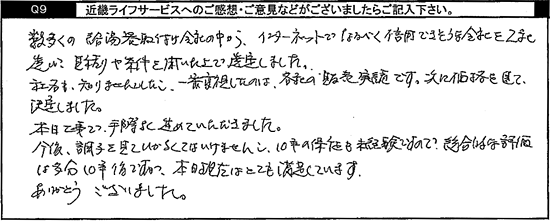 Q9 近畿ライフサービスへのご感想・ご意見などがございましたらご記入下さい。
数多くの給湯器取付け会社の中から、インターネットでなるべく信用できそうな会社を2社
選び、見積りや条件を聞いた上で選定しました。
社名も、知りませんでしたし、一番重視したのは、各社の販売実績です。次に価格を見て、
決定しました。
本日工事で、手際よく進めていただきました。
今後、調子を見ていかなくてはいけませんし、10年の保証も未経験ですので、総合的な評価
は多分10年後ですが、本日現在はとても満足しています。
ありがとうございました。